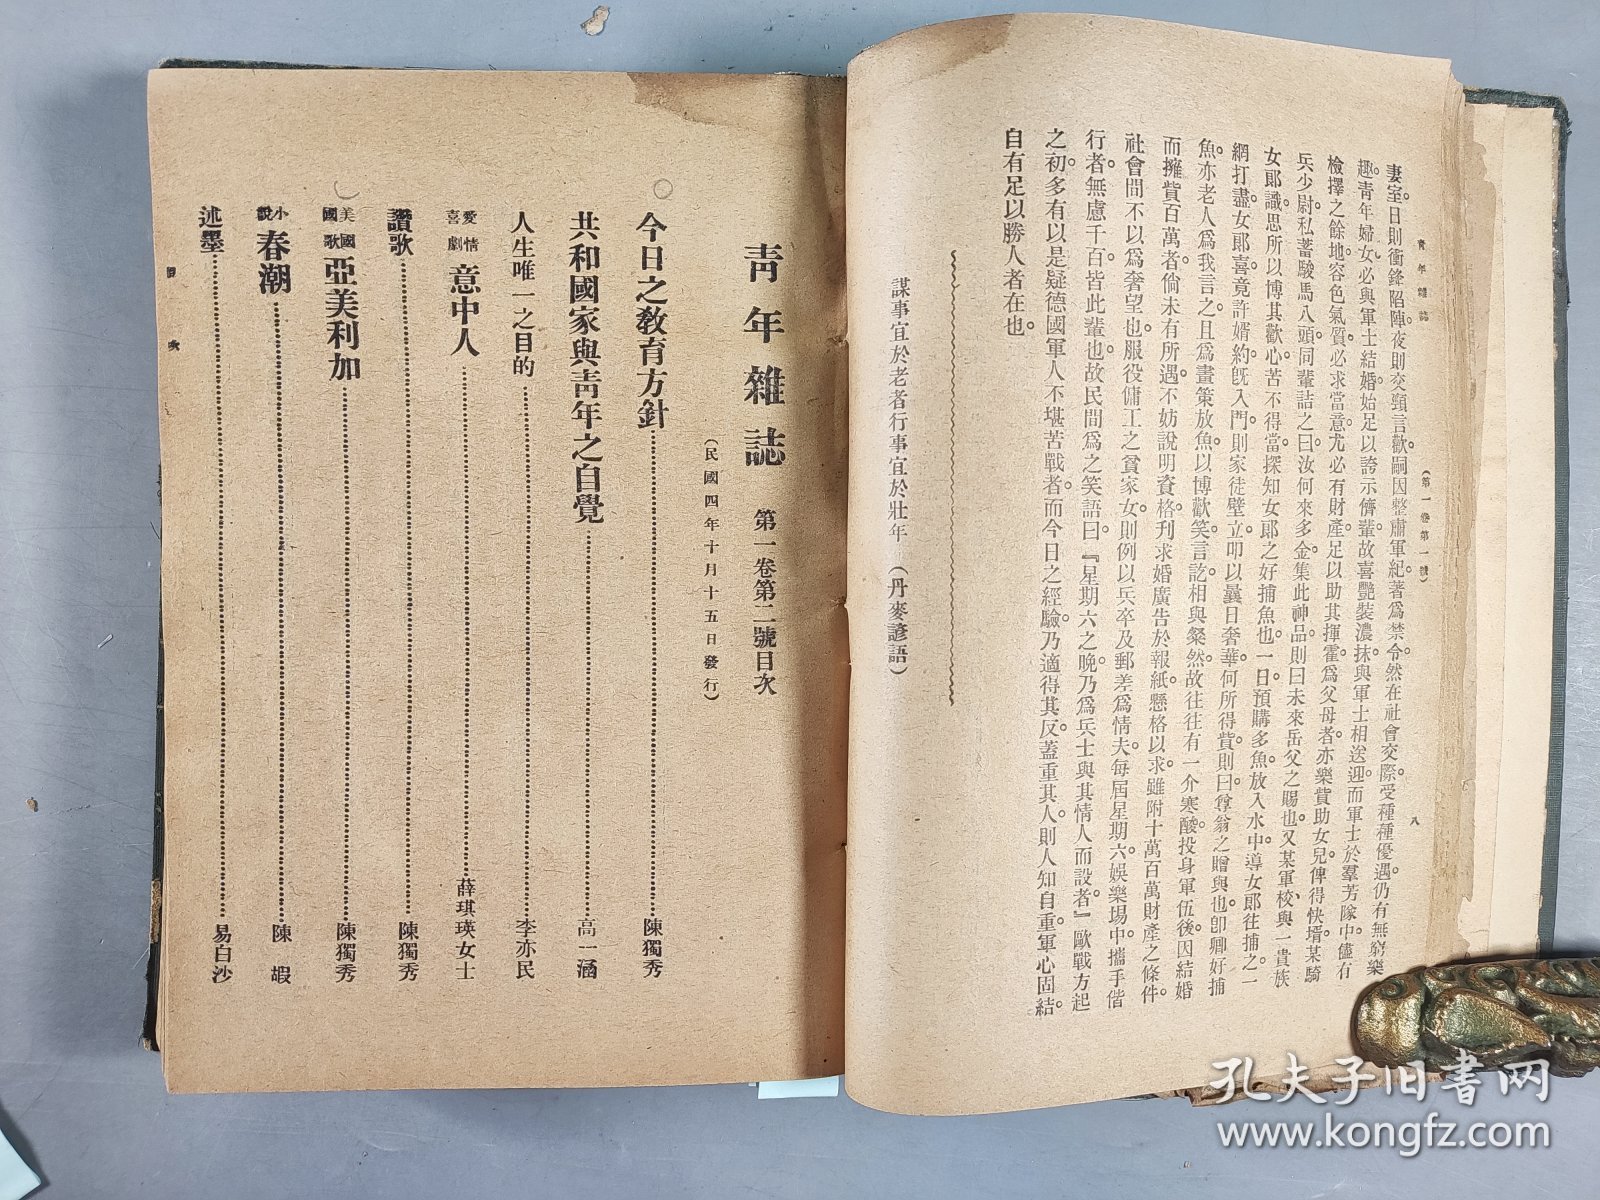 青年雜誌
（第一卷第一號）
八
妻室。日則衝鋒陷陣。夜則交頸言歡。嗣因整肅軍紀。著爲禁令。然在社會交際。受種種優遇。仍有無窮樂
趣。青年婦女必與軍士結婚。始足以誇示儕輩。故喜艷裝濃抹。與軍士相送迎。而軍士於羣芳隊中。儘有
檢擇之餘地。容色氣質。必求當意。尤必有財產足以助其揮霍。爲父母者。亦樂貲助女兒。俾得快壻。某騎
兵少尉。私蓄駿馬八頭。同輩詰之曰。汝何來多金。集此神品。則曰。未來岳父之賜也。又某軍校。與一貴族
女郞識。思所以博其歡心。苦不得當。探知女郞之好捕魚也。一日預購多魚。放入水中。導女郞往捕之。一
網打盡。女郞喜。竟許婿約。旣入門。則家徒壁立。叩以曩日奢華。何所得貲。則曰。尊翁之贈與也。卽卿好捕
魚。亦老人爲我言之。且爲畫策放魚。以博歡笑。言訖。相與粲然。故往往有一介寒酸。投身軍伍後。因結婚
而擁貲百萬者。倘未有所遇。不妨說明資格。刋求婚廣告於報紙。懸格以求。雖附十萬百萬財產之條件。
社會間不以爲奢望也。服役傭工之貧家女。則例以兵卒及郵差爲情夫。每屆星期六。娛樂場中。攜手偕
行者。無慮千百。皆此輩也。故民間爲之笑語曰。『星期六之晚。乃爲兵士與其情人而設者。』歐戰方起
之初。多有以是疑德國軍人不堪苦戰者。而今日之經驗。乃適得其反。蓋重其人。則人知自重。軍心固結。
自有足以勝人者在也。
謀事宜於老者行事宜於壯年　（丹麥諺語）
青年雜誌　第一卷第二號目次
（民國四年十月十五日發行）
今日之敎育方針……陳獨秀
共和國家與靑年之自覺……高一涵
人生唯一之目的……李亦民
愛情喜劇　意中人……薛琪瑛女士
讚歌……陳獨秀
美國國歌　亞美利加……陳獨秀
小說　春潮……陳嘏
述墨……易白沙
目次
孔夫子旧书网
www.kongfz.com